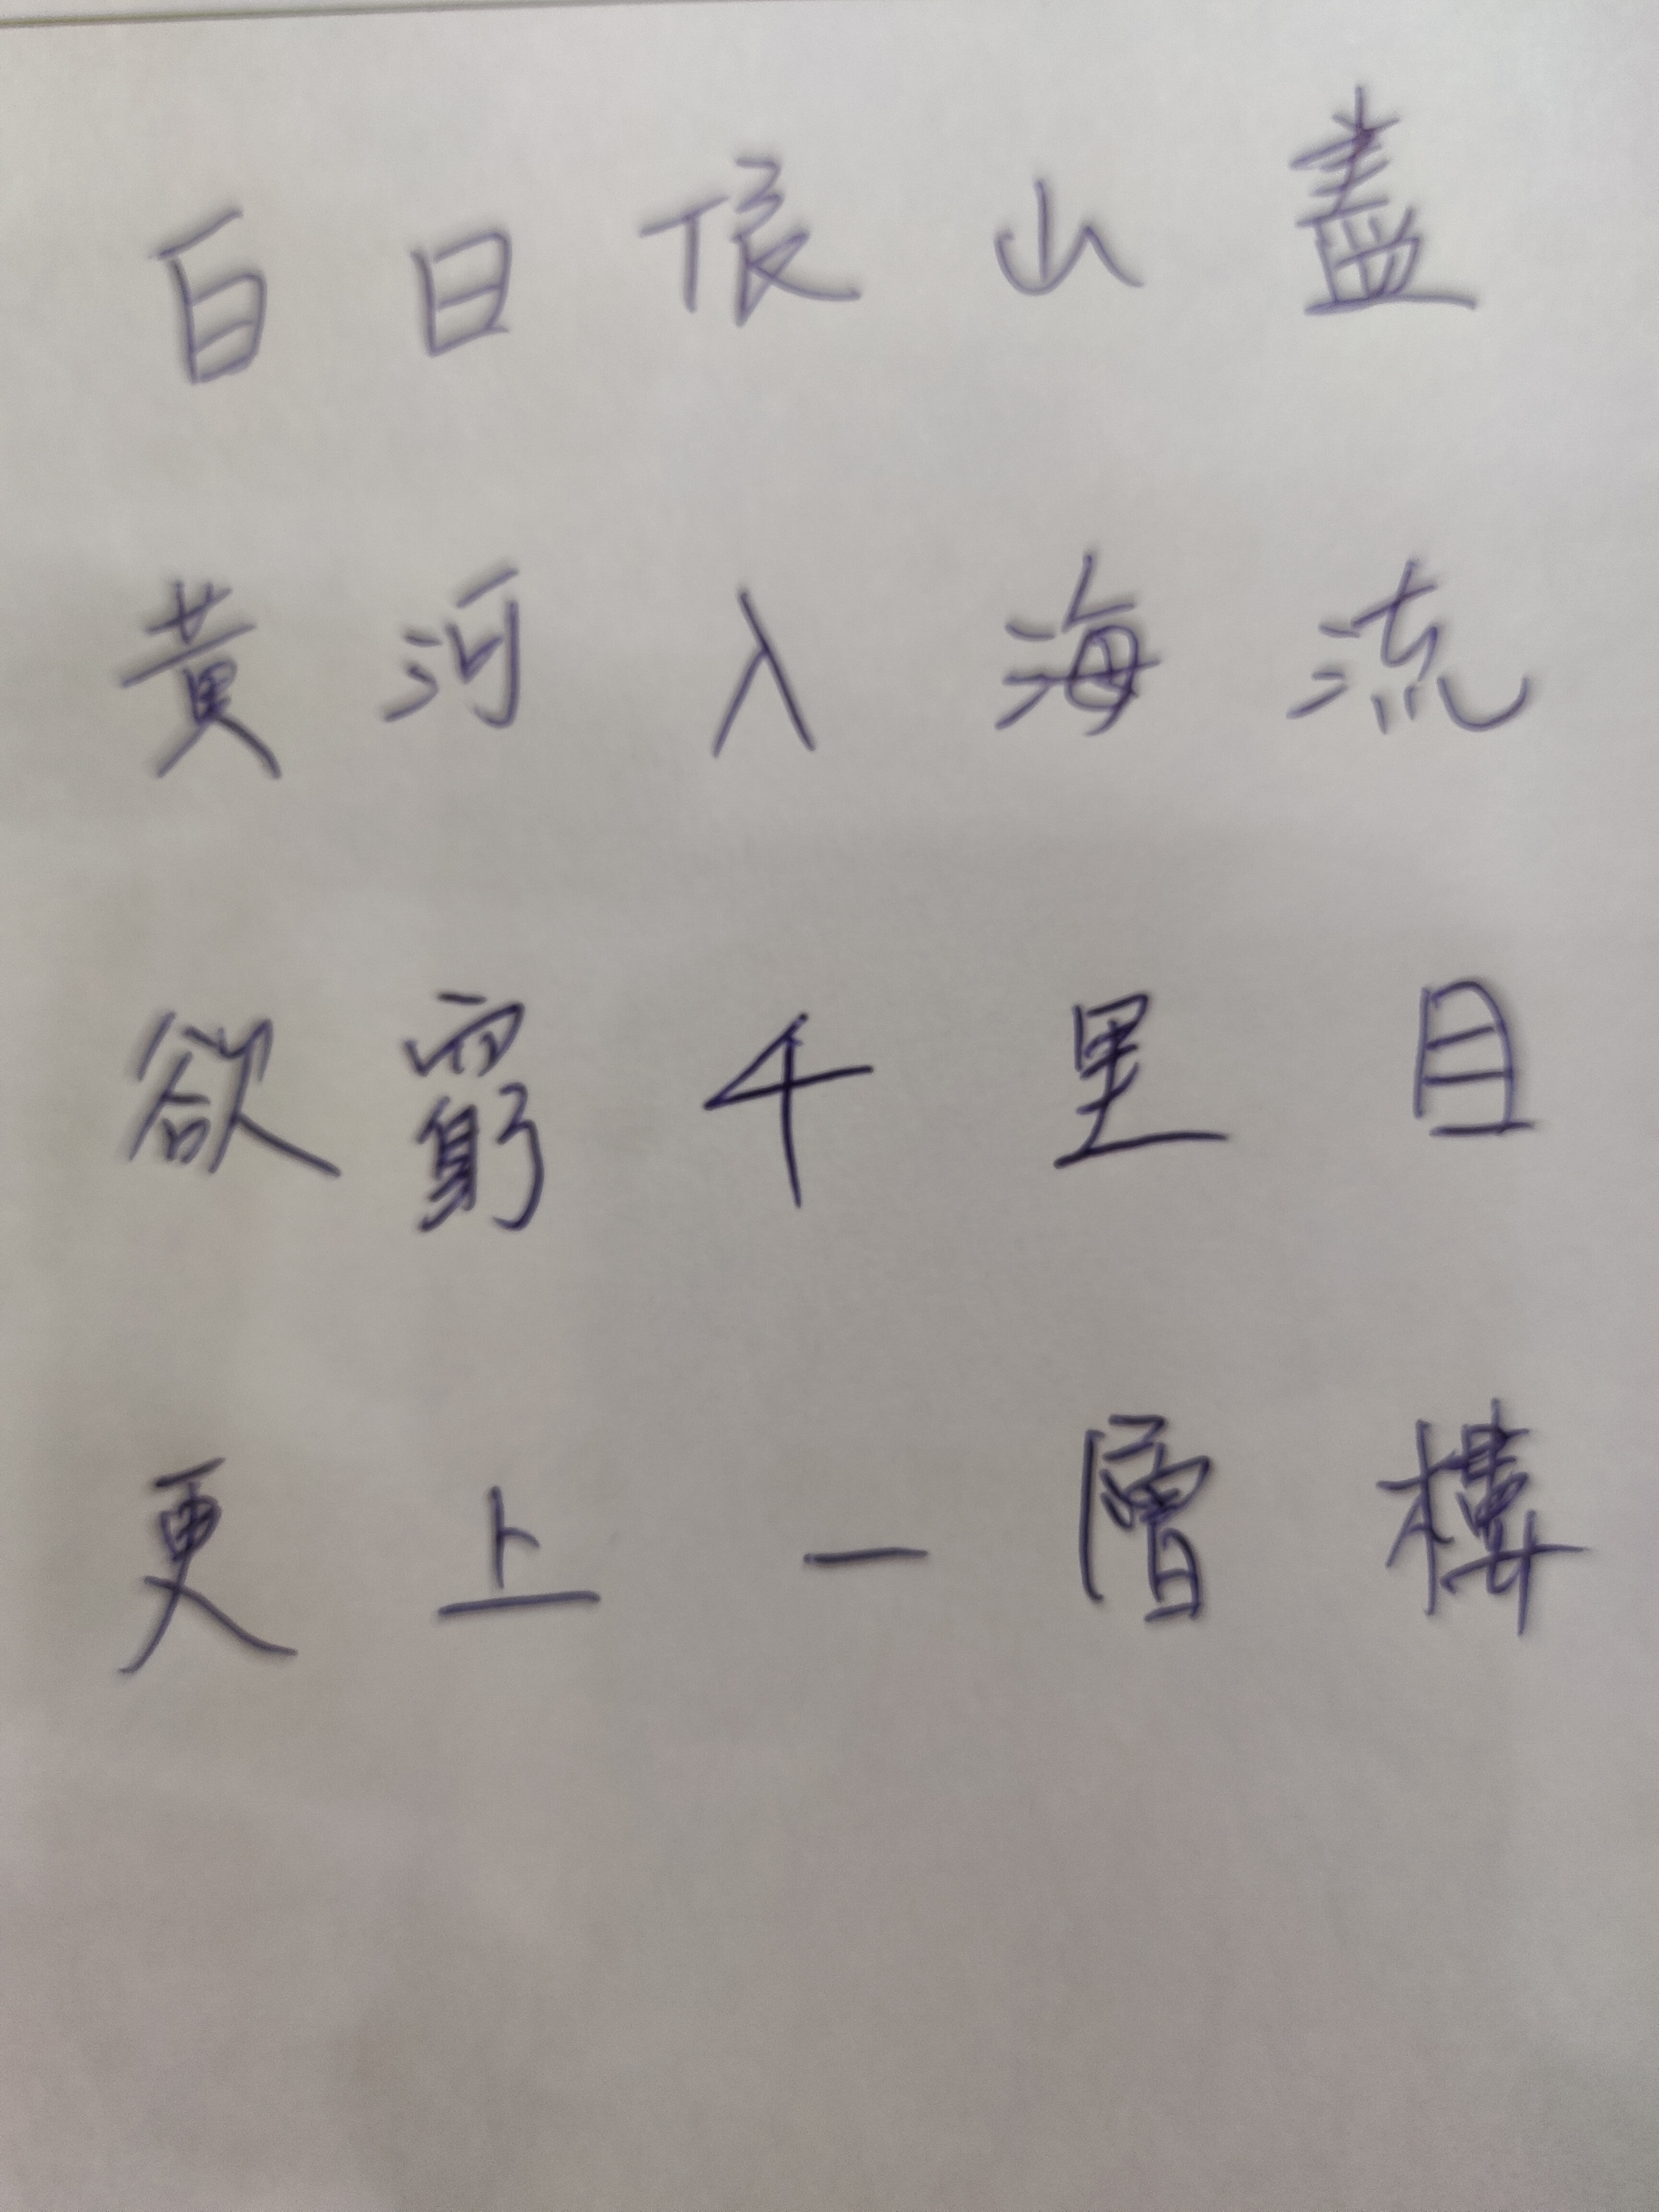 白日依山盡
黃河入海流
欲窮千里目
更上一層樓